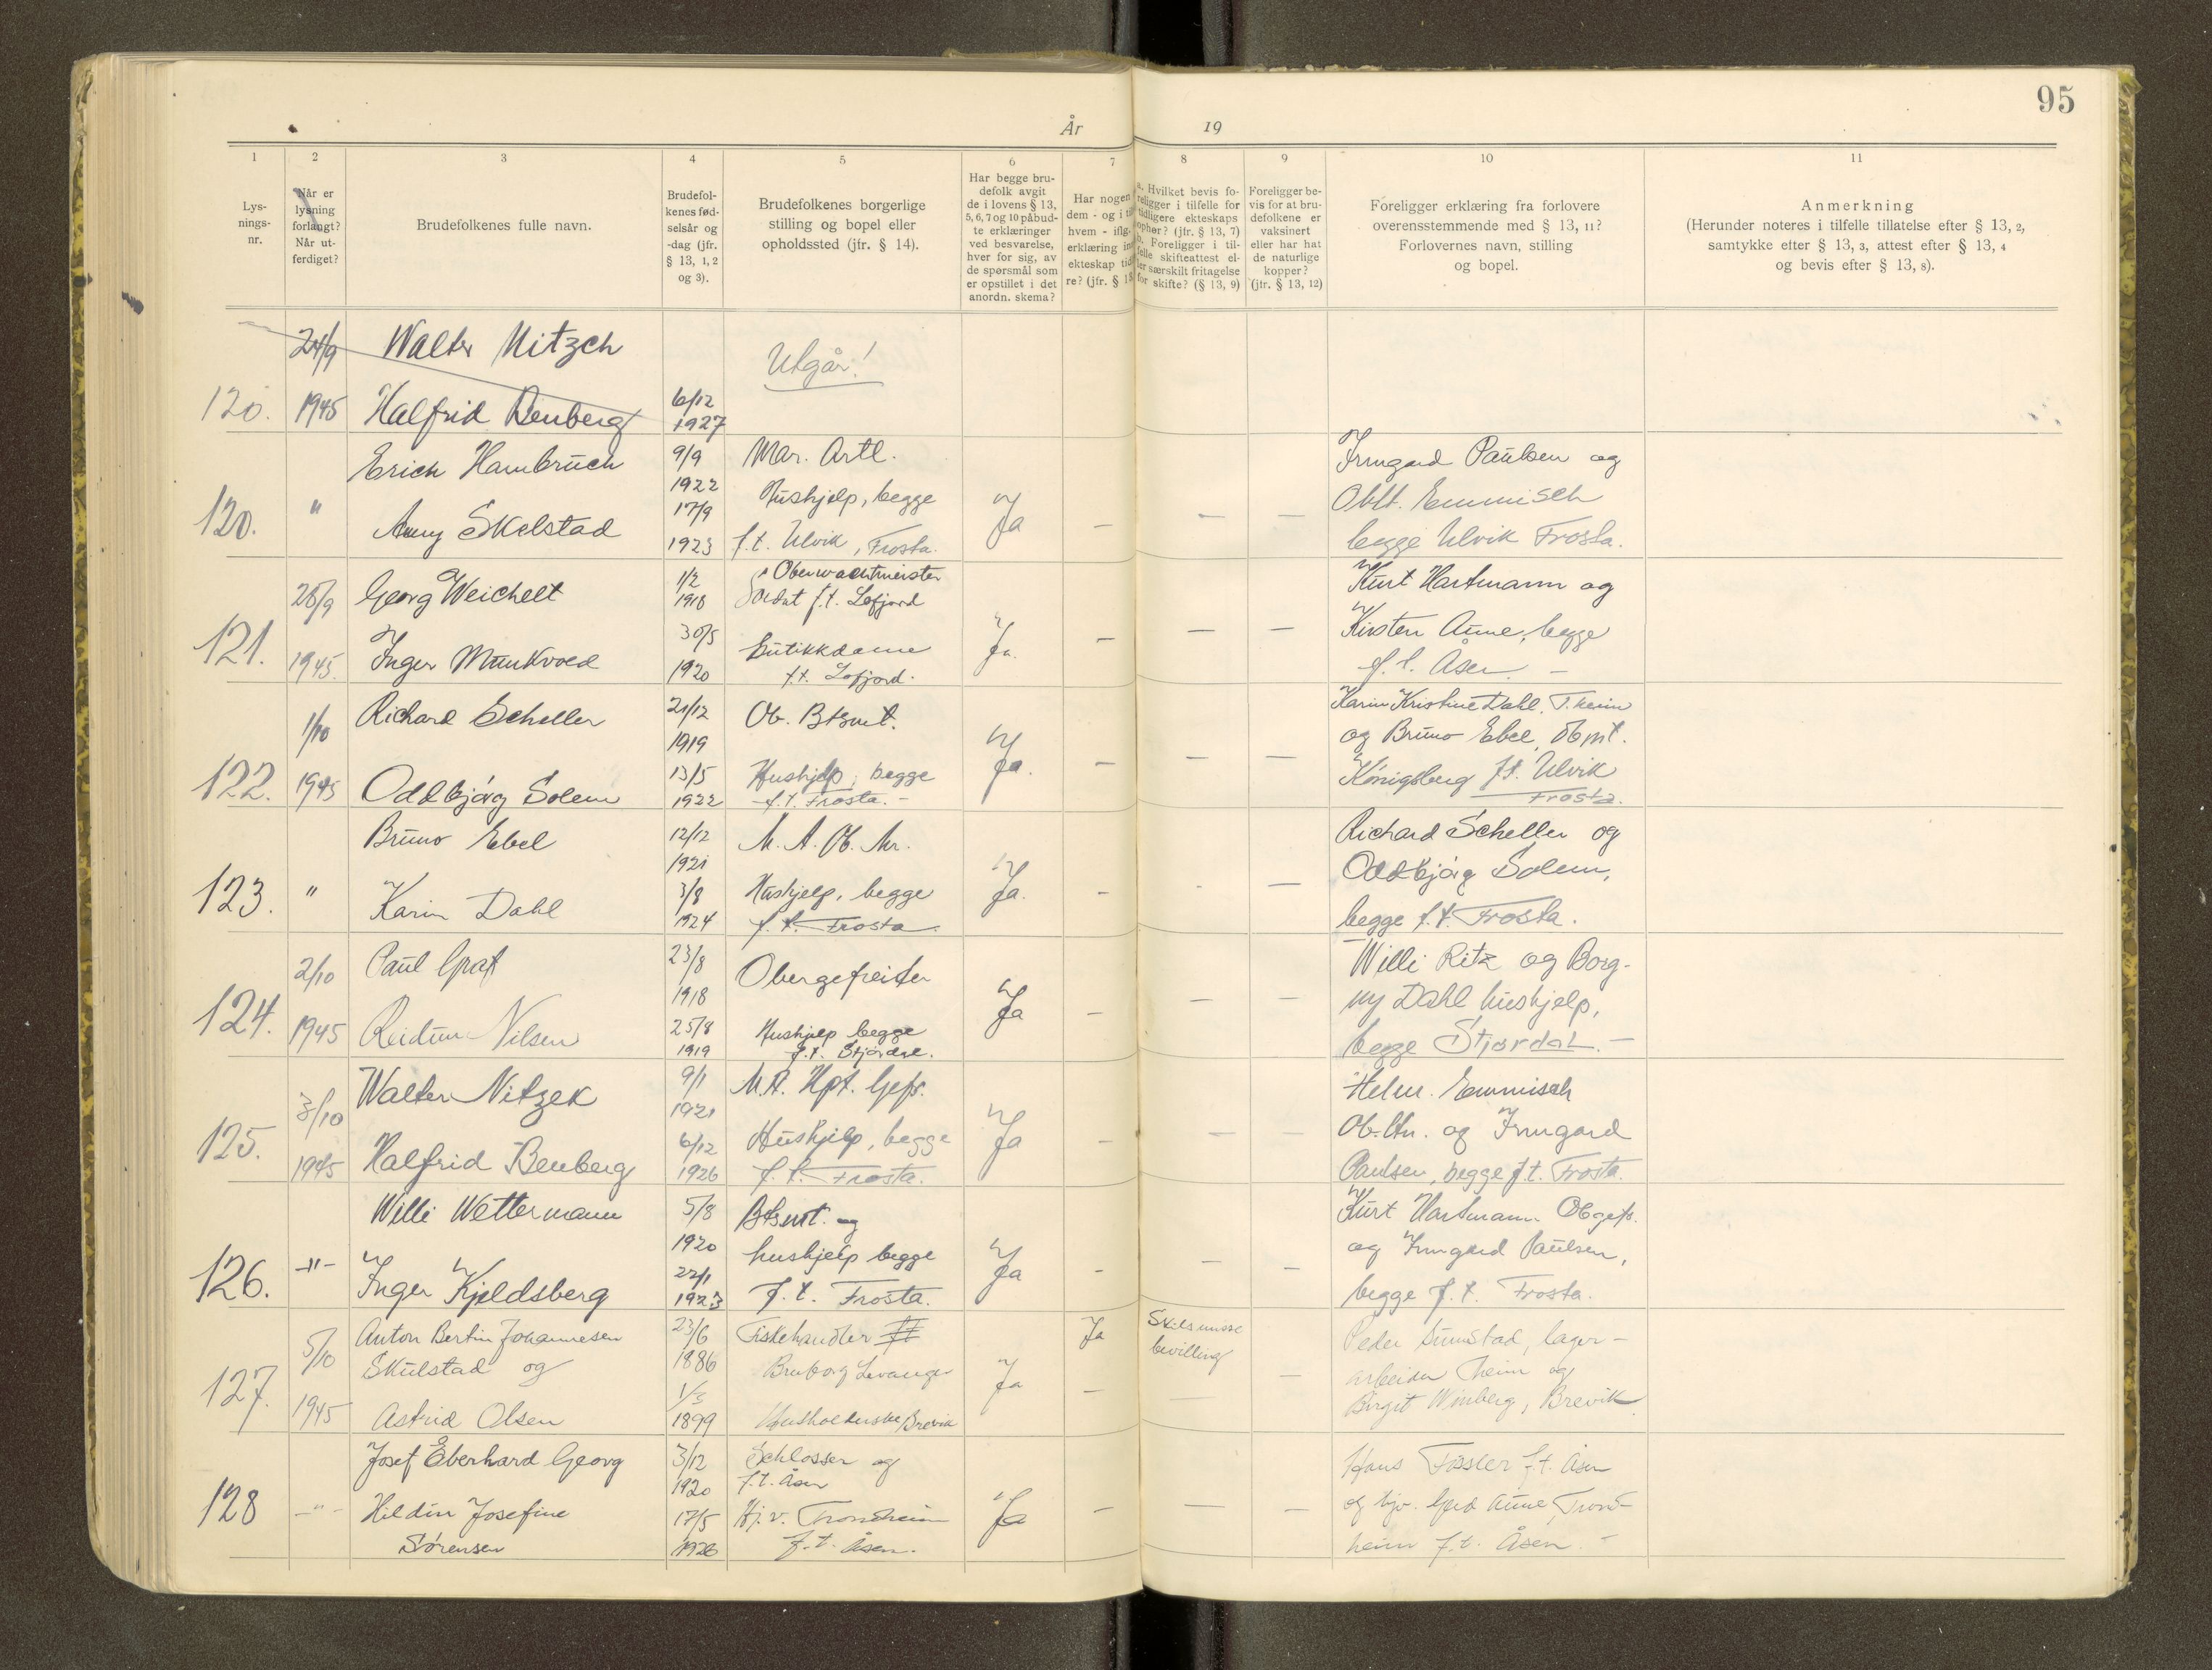 95
År 19
1 2 3 4 5 6 7 8 9 10 11
Lys-
nings-
nr.
Når er
lysning
forlangt?
Når ut-
ferdiget?
Brudefolkenes fulle navn.
Brudefol-
kenes fød-
selsår og
-dag (jfr.
§ 13, 1, 2
og 3).
Brudefolkenes borgerlige
stilling og bopel eller
opholdssted (jfr. § 14).
Har begge bru-
defolk avgit
de i lovens § 13,
5, 6, 7 og 10 påbud-
te erklæringer
ved besvarelse,
hver for sig, av
de spørsmål som
er opstillet i det
anordn. skema?
Har nogen
dem - og i
hvem - iflg.
erklæring
ekteskap
re? (jfr. §
a. Hvilket bevis fo-
religger i tilfelle for
tidligere ekteskaps
ophør? (jfr. § 13, 7)
b. Foreligger i til-
felle skifteattest el-
ler særskilt fritagelse
for skifte? (§ 13, 9)
Foreligger be-
vis for at bru-
defolkene er
vaksinert
eller har hat
de naturlige
kopper?
(jfr. § 13, 12)
Foreligger erklæring fra forlovere
overensstemmende med § 13, 11?
Forlovernes navn, stilling
og bopel.
Anmerkning
(Herunder noteres i tilfelle tillatelse efter § 13, 2,
samtykke efter § 13, 3, attest efter § 13, 4
og bevis efter § 13, 8).
24/9 Walter Nitzch
Utgår!
120. 1945 Halfrid Benberg 6/12
1927
Erich Hambruch 9/9 Mar. Artl. Irmgard Paulsen og
1922
120. " Hushjelp, begge Ja – – – Oblt. Emmisch
Anny Skelstad 17/9
1923 f.t. Ulvik, Frosta. begge Ulvik Frosta.
28/9 Georg Weichelt 1/2 Oberwachtmeister Kurt Hartmann og
1918 Soldat f.t. Lofjord
121. 30/5 Ja. – – – Kirsten Aune, begge
1945. Inger Munkvold Butikkdame
1920 f.t. Lofjord. f.t. Åsen. –
1/10 Richard Scheller 21/12 Ob. Btsmt. Karin Kristine Dahl. T.heim
1919 og Bruno Ebel,
122. 1945 Oddbjørg Solem 13/5 Hushjelp, begge Ja. – – – Königsberg f.t. Ulvik
1922 f.t. Frosta. – Frosta.
Bruno Ebel 12/12 M. A. Ob. Richard Scheller og
1921
123. " 3/8 Hushjelp, begge Ja. – - – Oddbjørg Solem,
Karin Dahl 1924 f.t. Frosta. begge f.t. Frosta.
2/10 Paul Graf 23/8 Obergefreiter Willi Ritz og Borg-
1918
124. Ja – – – ny Dahl hushjelp,
1945 Reidun Nilsen 25/8 Hushjelp begge
1919 f.t. Stjørdal. begge Stjørdal. –
Walter Nitzek 9/1 M.A. Hpt. Gefr. Helm. Emmisch
3/10 1921
125. 6/12 Hushjelp, begge Ja – – – Ob.ltn. og Irmgard
1945 Halfrid Benberg 1926 f.t. Frosta. Paulsen, begge f.t. Frosta.
Willi Wettermann 5/8 Btsmt. og Kurt Hartmann Obgefr.
1920 hushjelp begge
126. –"– Inger Kjeldsberg 22/1 Ja – – – og Irmgard Paulsen,
1923 f.t. Frosta. begge f.t. Frosta.
5/10 Anton Bertin Johannesen 23/6 Fiskehandler Ja Skilsmisse Peder Sunstad, lager-
Skulstad og 1886 Bruborg Levanger bevilling
127. 1/3 Ja – – – arbeider T.heim og
1945 Astrid Olsen 1899 Husholderske Brevik Birgit Winberg, Brevik
Josef Eberhard Georg 3/12 Schlosser og Hans Fössler f.t. Åsen
1920 f.t. Åsen
128 –"– Hildur Josefine 17/5 Hj.v. Trondheim Ja – – – og hjv. Gerd Aune, Trond-
Sörensen 1926 f.t. Åsen. heim f.t. Åsen. –